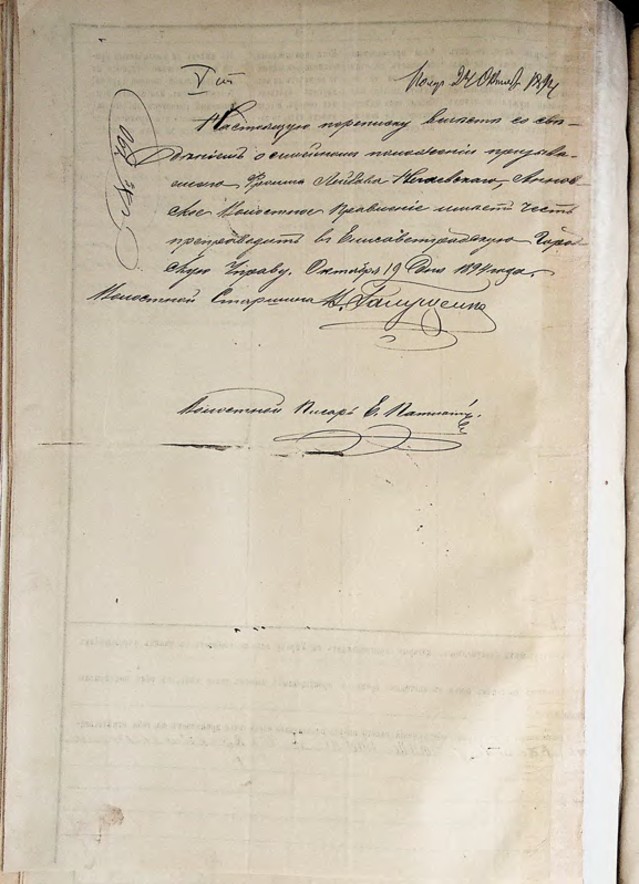 V ст
Получ 24 Октяб 1894
№ 790
Настоящую переписку вместе со све-
дѣніемъ о семейномъ положеніи призыва-
емаго Фроима Лейбова Нечаевскаго, Аннов-
ское Волостное Правленіе имѣетъ честь
препроводить въ Елисаветградскую Город-
скую Управу. Октября 19 дня 1894 года.
Волостной Старшина
Волостной Писарь Е.